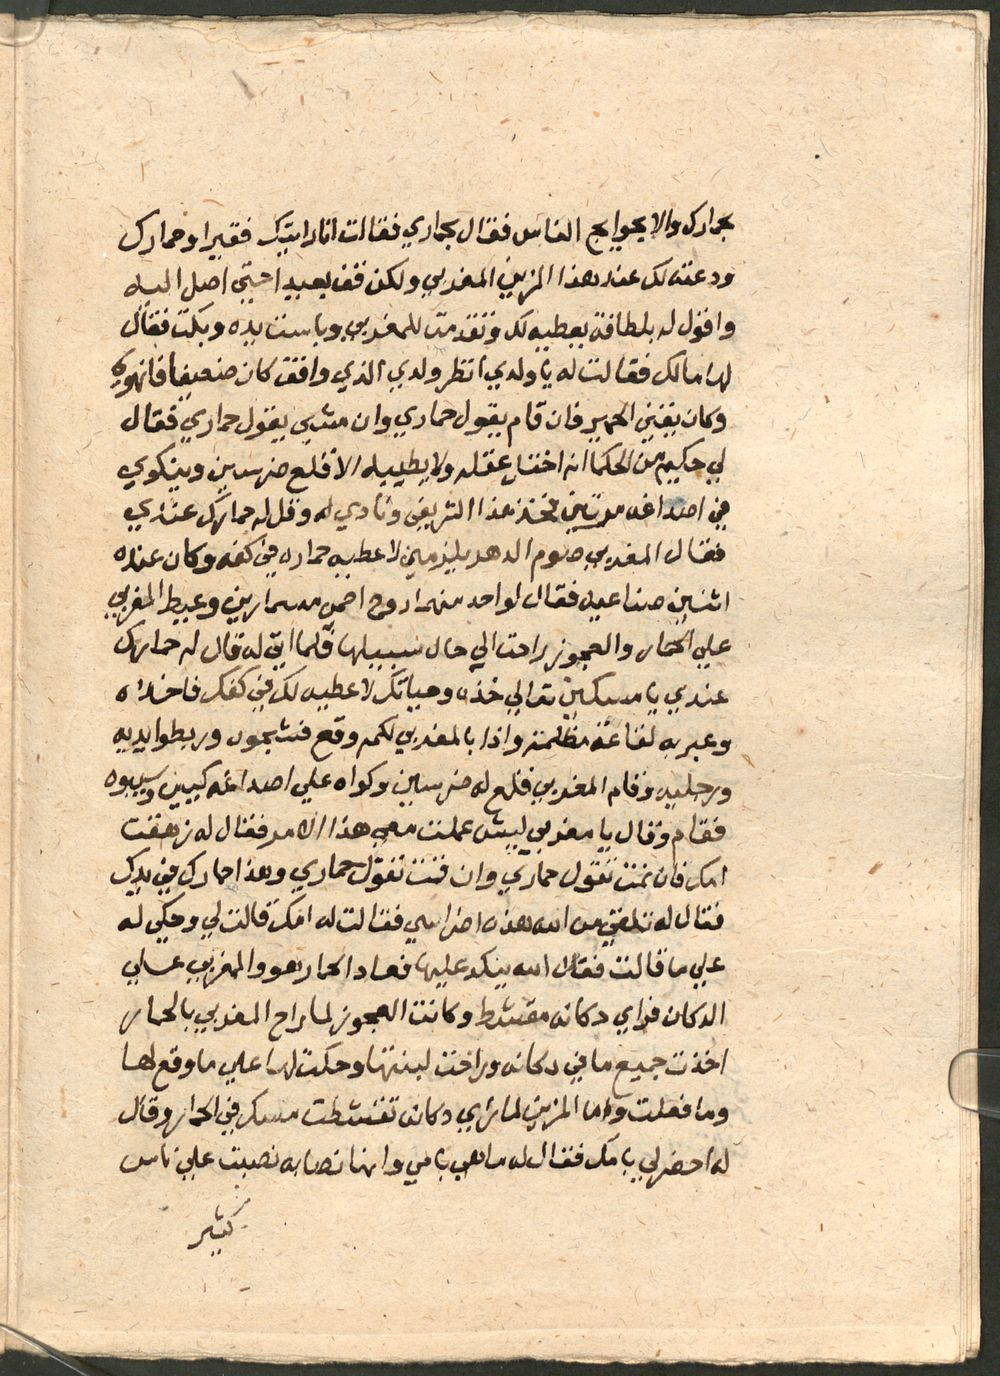 بحمارك والا بحوايج الناس فقال بحماري فقالت انا رايتك فقيرا وحمارك
ودعته لك عند هذا المزين المغربي ولكن قف بعيد احتى اصل اليه
واقول له بلطافة يعطيه لك وتقدمت للمغربي وباست يده وبكت فقال
لها مالك فقالت له يا ولدي انظر ولدي الذي واقف كان ضعيفا فانهوى
وكان يقني الحمير فان قام يقول حماري وان مشي يقول حماري فقال
لي حكيم من الحكما انه اختل عقله ولا يطيبه الا قلع ضرسين وينكوي
في اصداغه مرتين فخذ هذا الشريفي ونادي له وقل له حمارك عندي
فقال المغربي صوم الدهر يلزمني لاعطيه حماره في كفه وكان عنده
اثنين صناعيه فقال لواحد منهم اروح احمي مسمارين وعيط المغربي
علي الحمار والعجوز راحت الي حال سبيلها فلما اتي له قال له حمارك
عندي يا مسكين تعالي خذه وحياتك لاعطيه لك في كفك فاخذه
وعبر به لقاعة مظلمة واذا بالمغربي لكمه وقع فشجوه وربطوا يديه
ورجليه وقام المغربي قلع له ضرسين وكواه علي اصداغه كيين وسيبوه
فقام وقال يا مغربي ليش عملت معي هذا الامر فقال له زهقت
امك فان نمت تقول حماري وان قمت تقول حماري وهذا حمارك في يدك
فقال له تلقي من الله هذه اضراسي فقالت له امك قالت لي وحكي له
علي ما قالت فقال الله ينكد عليها فعاد الحمار هو والمغربي علي
الدكان فراي دكانه مقشط وكانت العجوز لما راح المغربي بالحمار
اخذت جميع ما في دكانه وراحت لبنتها وحكت لها علي ما وقع لها
وما فعلت واما المزين لما راي دكانه تقشطت مسك في الحمار وقال
له احضر لي يامك فقال له ما هي يامي وانما نصابه نصبت علي ناس
كثير